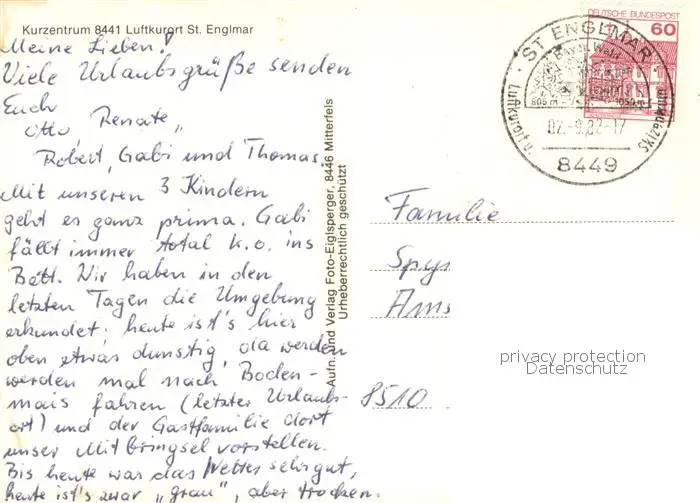 Kurzentrum 8441 Luftkurort St. Englmar
Meine Lieben!
Viele Urlaubsgrüße senden
Euch
Otto Renate,,
Robert, Gabi und Thomas
Mit unseren 3 Kindern
geht es ganz prima. Gabi
fällt immer total k.o. ins
Bett. Wir haben in den
letzten Tagen die Umgebung
erkundet; heute ist's hier
oben etwas dunstig, da werden
werden mal nach Boden-
mais fahren (letzter Urlaubs-
ort) und der Gastfamilie dort
unser Mitbringsel vorstellen.
Bis heute war das Wetter sehr gut,
heute ist's zwar "grau", aber trocken.
Aufn. und Verlag Foto-Eiglsperger, 8446 Mitterfels
Urheberrechtlich geschützt
DEUTSCHE BUNDESPOST
60
ST ENGLMAR
Bayr. Wald
805m - 1050m
Luftkurort u. Skizentrum
02.-9.82-17
8449
Familie
Spys
Ams
8510
privacy protection
Datenschutz